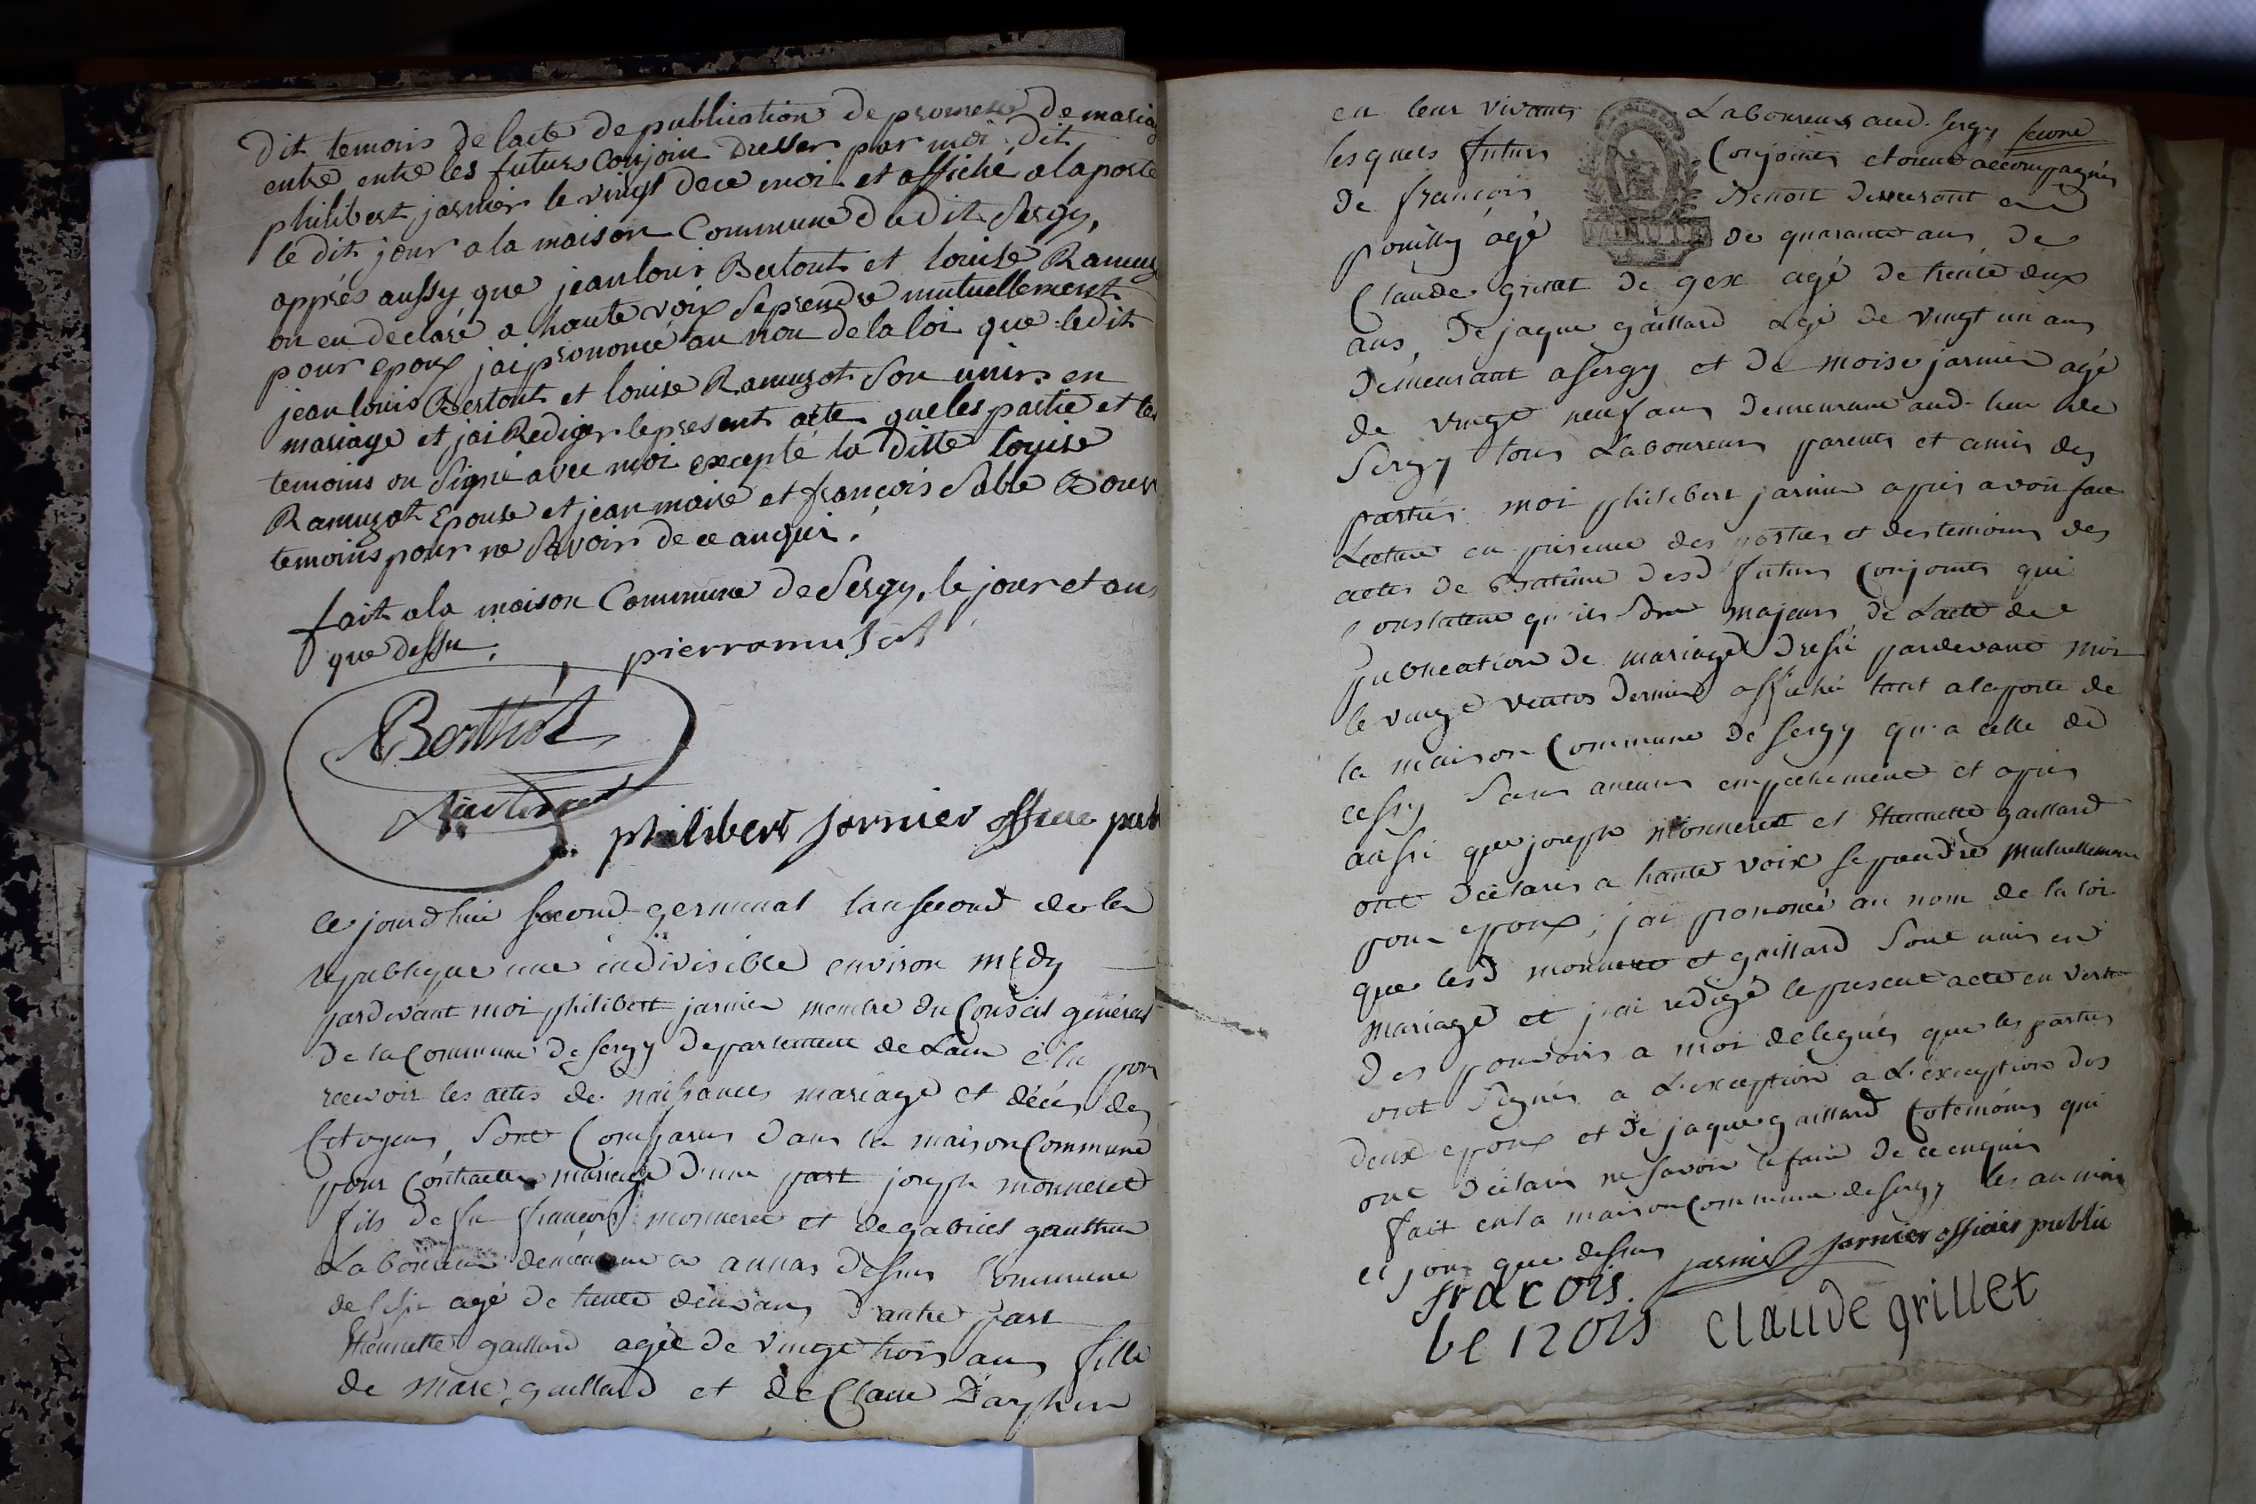 dit temoins de lacte de publication de promese de mariag
entre entre les futurs Conjoin dresser par moi dit
philibert jarnier le vingt de ce moi et affiché a la porte
le dit jour a la maison Commune du dit Sergy,
apprés aussy que jean louis Bertout et louise Ramuz
on en declaré a haute voix se prendre mutuellement
pour epoux jai prononcé au non de la loi que le dit
jean louis Bertout et louise Ramuzot son unirs en
mariage et jai Rediger le present acte que les partie et les
temoins on Signé avec moi excepté la ditte louise
Ramuzot Epouse et jean maire et françois
temoins pour ne Savoir de ce anquir.
fait a la maison Commune de Sergy, le jour et an
que dessu.
pierramusot
Berthot
philibert jarnier officie pub
Ce jourdhui second germinal lan second de la
republique une indivisible environ midy
pardevant moi philibert jarnier membre du Conseil général
de la Commune de sergy departement de Lain élu pour
recevoir les actes de naissances mariage et décés des
Citoyens, Sont Comparus dans la maison Commune
pour Contracter mariage d'une part joseph monneret
fils de fu françois monneret et de gabriel gauthier
Laboureur demeurant a annas dessus Commune
de agé de trente deux ans d'autre part
Etiennette gaillard agée de vingt trois ans fille
de Marc gaillard et de Claire
en leur vivants Laboureurs aud. sergy
lesquels futurs Conjoints étoient accompagnés
de françois Benoit demeurant a
pouilly agé de quarante ans, de
Claude grillet de gex agé de trente deux
ans, de jaque gaillard agé de vingt un ans
demeurant a sergy et de moise jarnier agé
de vingt neuf ans demeurant aud. lieu de
Sergy tous Laboureurs parents et amis des
parties. moi philibert jarnier apres avoir fait
Lecture en presence des parties et des temoins des
actes de desd futurs Conjoints qui
constatent qu'ils sont majeurs, de Lacte de
publication de mariage dressé pardevant moi
le vingt ventos dernier affiché tant a la porte de
la maison Commune de Sergy qu'a celle de
cessy Sans aucuns empechement et apres
aussi que joseph Monneret et Etiennette gaillard
ont déclarés a haute voix se prendre mutuellement
pour epoux, j'ai prononcé au nom de la loi
que lesd monneret et gaillard Sont unis en
mariage et j'ai redigé le present acte en vertu
des pouvoirs a moi delegués que les parties
ont Signés a L'exception a L'exception des
deux epoux et de jaque gaillard Cotemoins qui
ont déclarés ne savoir le faire de ce enquis
fait en la maison Commune de sergy les an mois
et jour que dessus jarnier jarnier officier public
fracois
be nois claude grillet